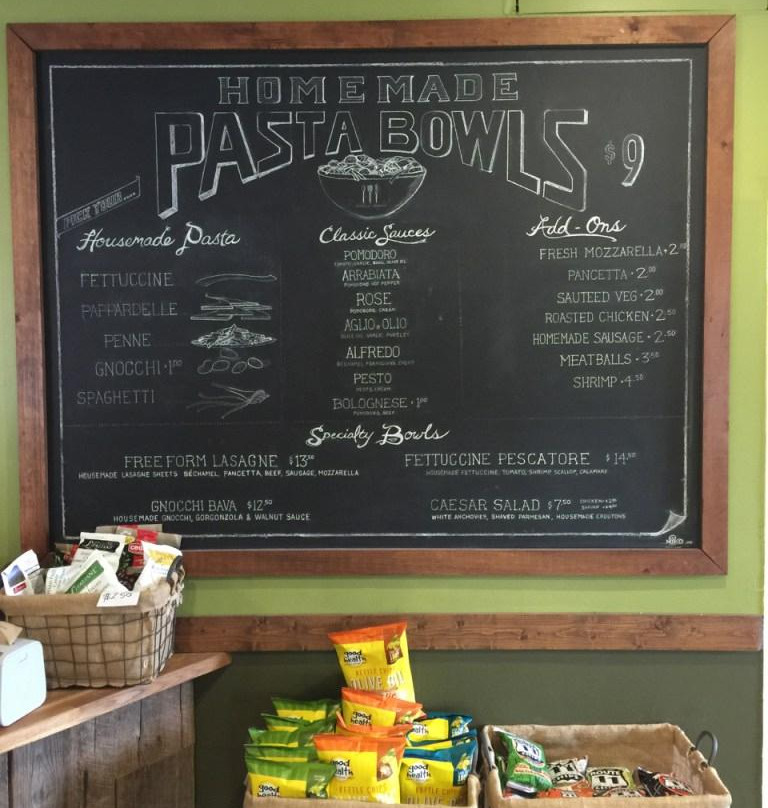 HOMEMADE
PASTA BOWLS $9
PICK YOUR....
Housemade Pasta
FETTUCCINE
PAPPARDELLE
PENNE
GNOCCHI · 1⁰⁰
SPAGHETTI
Classic Sauces
POMODORO
ARRABIATA
ROSE
AGLIO e OLIO
ALFREDO
PESTO
BOLOGNESE · 1⁰⁰
Add-Ons
FRESH MOZZARELLA · 2
PANCETTA · 2⁰⁰
SAUTEED VEG · 2⁰⁰
ROASTED CHICKEN · 2⁵⁰
HOMEMADE SAUSAGE · 2⁵⁰
MEATBALLS · 3⁵⁰
SHRIMP · 4⁵⁰
Specialty Bowls
FREE FORM LASAGNE $13⁵⁰
HOUSEMADE LASAGNE SHEETS BÉCHAMEL, PANCETTA, BEEF, SAUSAGE, MOZZARELLA
FETTUCCINE PESCATORE $14⁵⁰
HOUSEMADE FETTUCCINE, TOMATO, SHRIMP, SCALLOP, CALAMARI
GNOCCHI BAVA $12⁵⁰
HOUSEMADE GNOCCHI, GORGONZOLA & WALNUT SAUCE
CAESAR SALAD $7⁵⁰
WHITE ANCHOVIES, SHAVED PARMESAN, HOUSEMADE CROUTONS
$2.50
good health
KETTLE CHIPS
OLIVE OIL
good health
good health
KETTLE CHIPS
OLIVE OIL
good health
good health
ROUTE 11